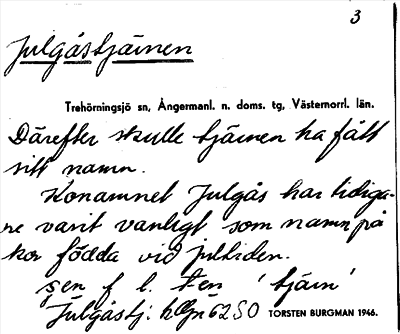 3
Julgåstjärnen
Trehörningsjö sn, Ångermanl. n. doms. tg, Västernorrl. län.
Därefter skulle tjärnen ha fått
sitt namn.
Konamnet Julgås har tidiga-
re varit vanligt som namn på
kor födda vid jultiden.
sen f l. t en 'tjärn'
Julgåstj.
TORSTEN BURGMAN 1946.